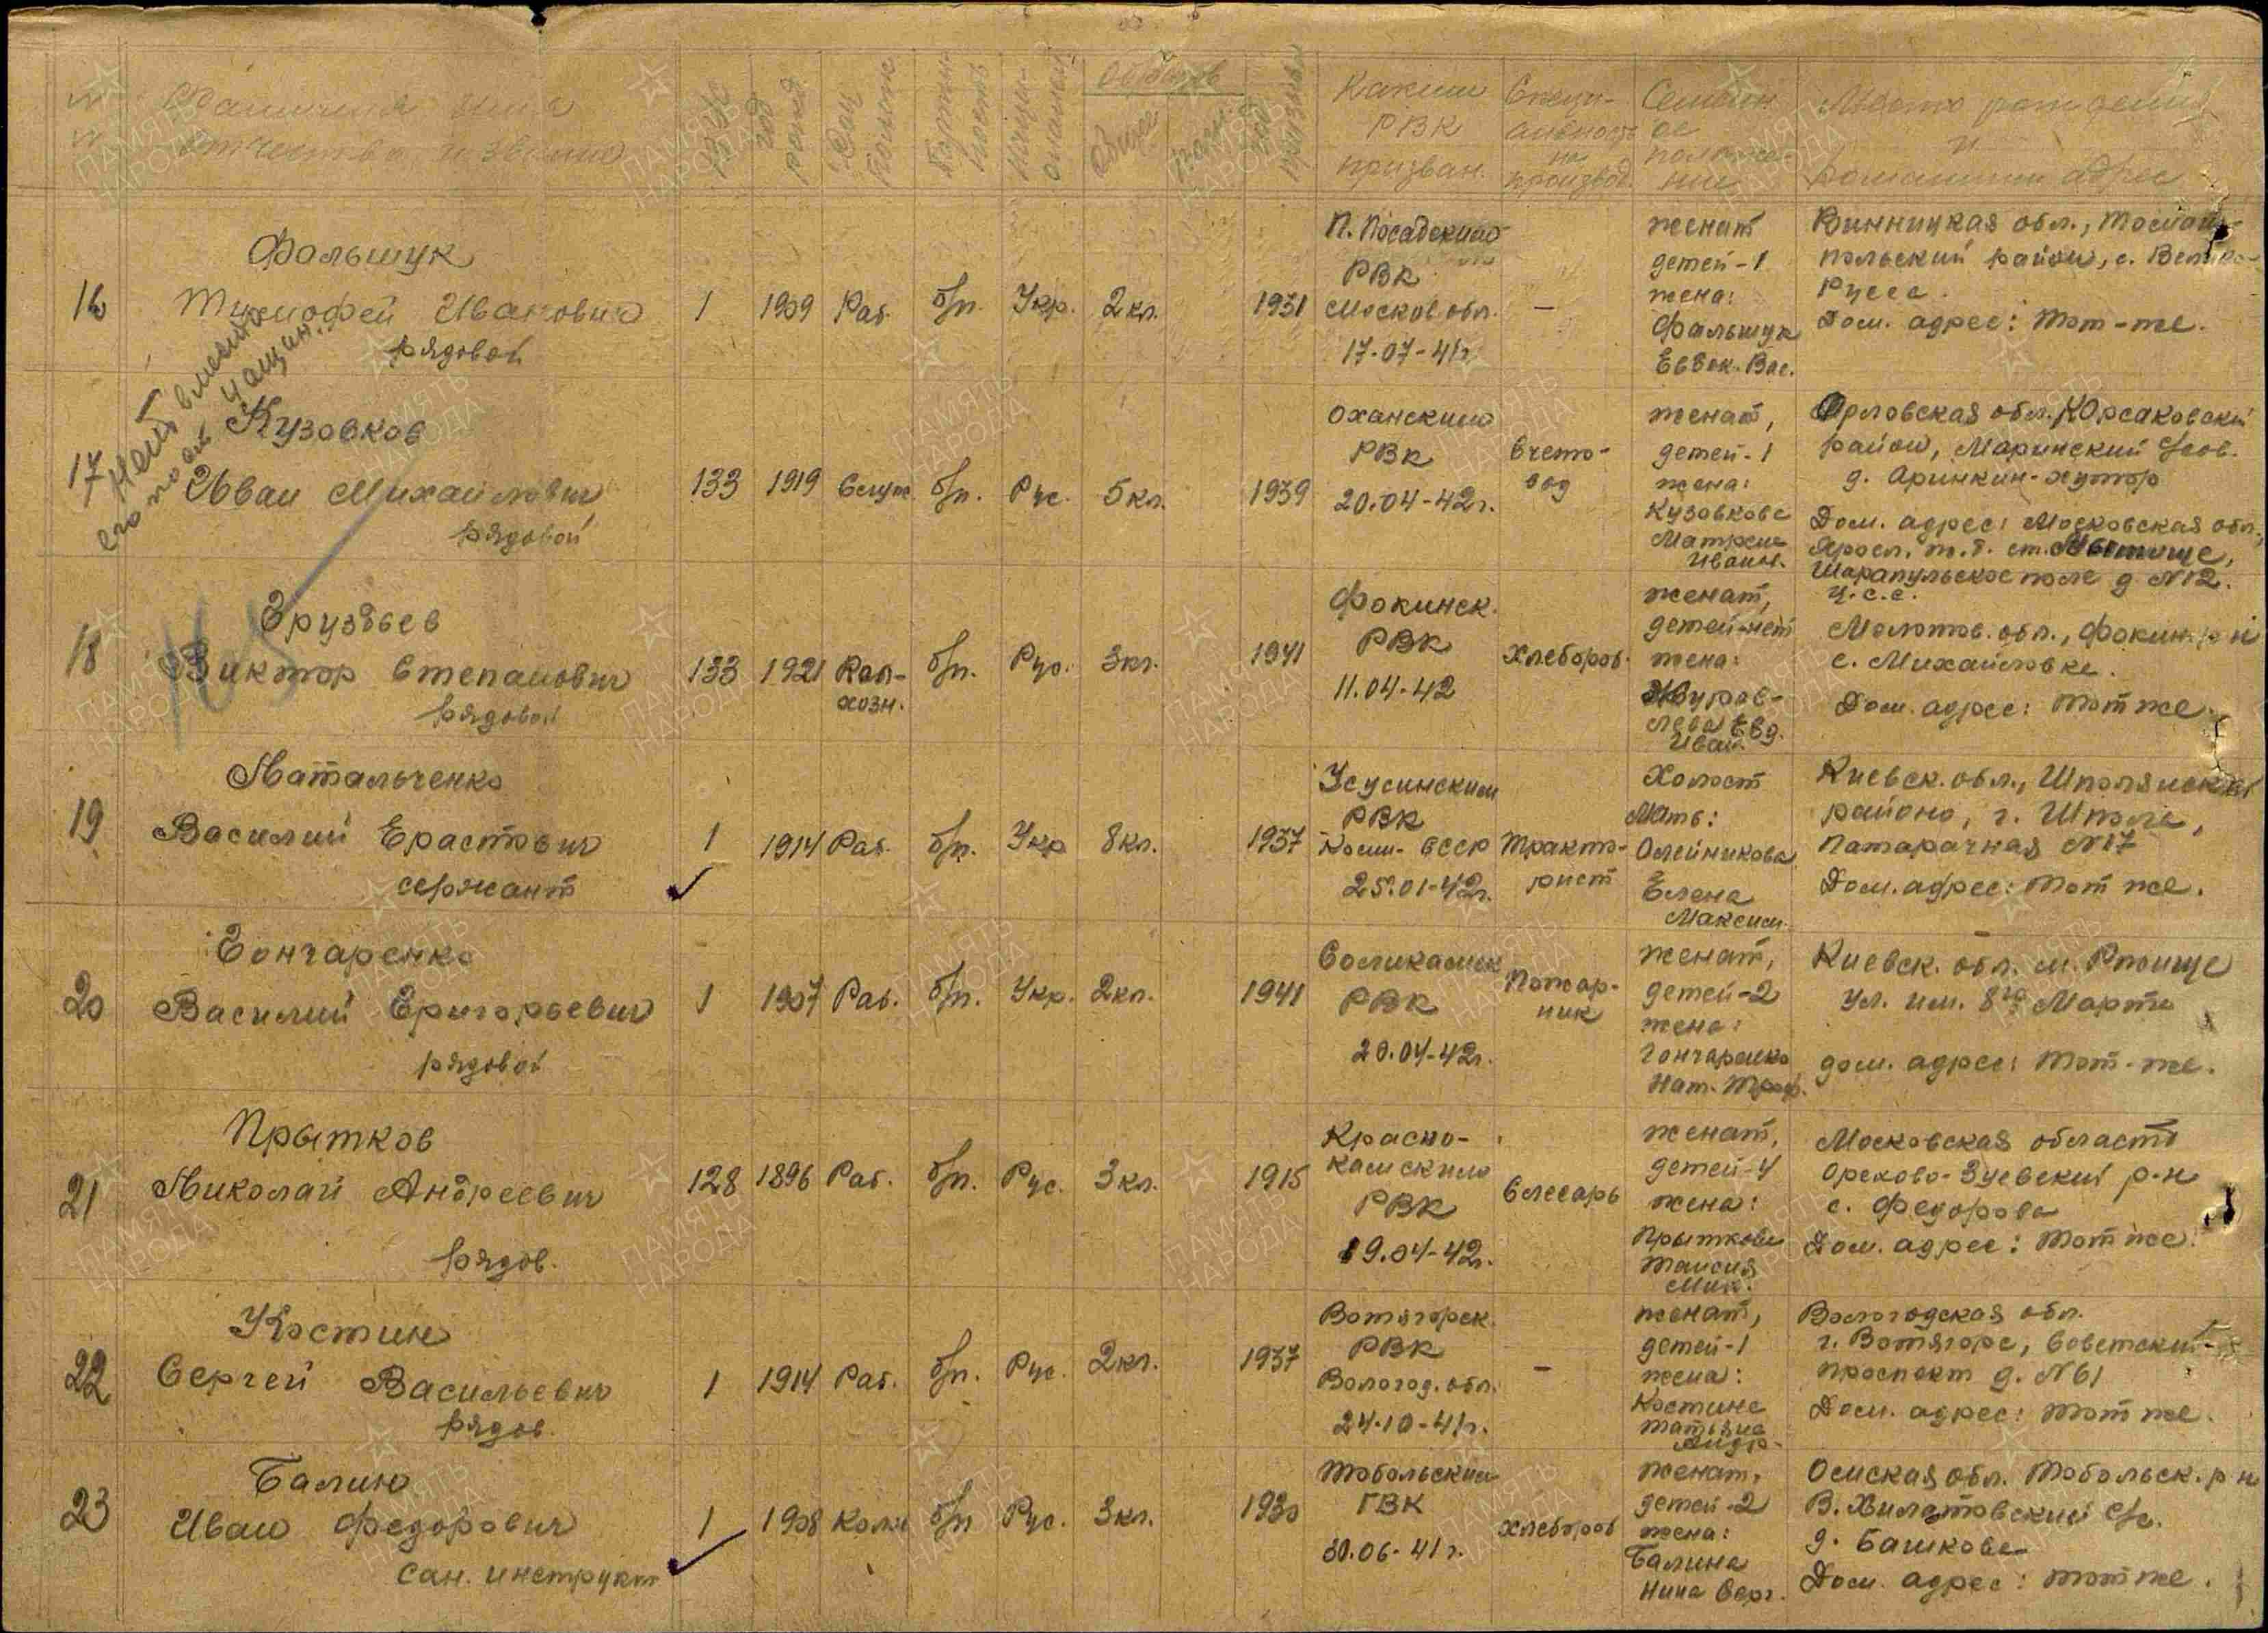 № № Фамилия имя отчество и звание ВУС год рожд. Соц. полож. Партийность Национальн. Образов. общее Год призыва Каким РВК призван. Специальность на производ. Семейное положение Место рождения и домашний адрес
16 Фальшук Тимофей Иванович рядовой
1 1909 Раб. б/п. Укр. 2 кл. 1931
П. Посадским РВК Москов. обл. 17-07-41 г.
—
женат детей-1 жена: Фальшук Евдок. Вас.
Винницкая обл., район, с. Велика-Русса.
Дом. адрес: Тот-же.
Нет вместо его
17 Кузовков Иван Михайлович рядовой
133 1919 Служ. б/п. Рус. 5 кл. 1939
Оханским РВК 20.04-42 г.
Счетовод
женат, детей-1 жена: Кузовкова Матрена Иванов.
Орловская обл. Корсаковский район, Маринский с/сов. д. Аринкин-хутор
Дом. адрес: Московская обл., Яросл. ж.д. ст. Мытище, Шарапульское поле д №12. ч.с.с.
18 Груздьев Виктор Степанович рядовой
133 1921 Колхозн. б/п. Рус. 3 кл. 1941
Фокинск. РВК 11.04-42
Хлебороб.
женат, детей-нет жена: Журавлева Евд. Иван.
Молотов. обл., Фокин. р-н с. Михайловка.
Дом. адрес: Тот же.
19 Натальченко Василий Ерастович сержант
1 1914 Раб. б/п. Укр 8 кл. 1937
Усусинским РВК Коми-АССР 25.01-42 г.
Тракторист
Холост Мать: Олейникова Елена Максим.
Киевск. обл., Шполянский района, г. Шпола, №17
Дом. адрес: Тот же.
20 Гончаренко Василий Григорьевич рядовой
1 1907 Раб. б/п. Укр. 2 кл. 1941
Соликамск РВК 20.04-42 г.
Пожарник
женат, детей-2 жена: Гончаренко Нат. Троф.
Киевск. обл. м. Ржище ул. им. 8го Марта
дом. адрес: Тот-же.
21 Прытков Николай Андреевич рядов.
128 1896 Раб. б/п. Рус. 3 кл. 1915
Краснокамским РВК 19.04-42 г.
Слесарь
женат, детей-4 жена: Прыткова Таисия Мих.
Московская область Орехово-Зуевский р-н с. Федорова
Дом. адрес: Тот же.
22 Костин Сергей Васильевич рядов.
1 1914 Раб. б/п. Рус. 2 кл. 1937
Вотягорск. РВК Вологод. обл. 24-10-41 г.
—
женат, детей-1 жена: Костина Татьяна Андр.
Вологодская обл. г. Вотягорс, Советский-проспект д. №61
Дом. адрес: Тот же.
23 Балин Иван Федорович сан. инструкт
1 1908 Колх б/п Рус. 3 кл. 1930
Тобольским ГВК 30.06-41 г.
Хлебороб
женат, детей-2 жена: Балина Нина Серг.
Омская обл. Тобольск. р-н В. Филатовский с/с. д. Башкова
Дом. адрес: Тот же.
ПАМЯТЬ НАРОДА